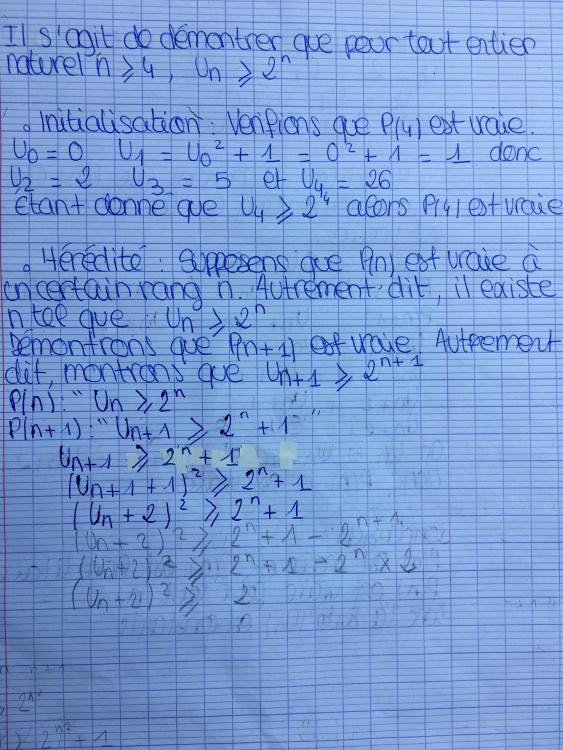 Il s'agit de démontrer que pour tout entier
naturel n ⩾ 4, Un ⩾ 2ⁿ
• Initialisation : Vérifions que P(4) est vraie.
U₀ = 0 U₁ = U₀² + 1 = 0² + 1 = 1 donc
U₂ = 2 U₃ = 5 et U₄ = 26
étant donné que U₄ ⩾ 2⁴ alors P(4) est vraie
• Hérédité : Supposons que P(n) est vraie à
un certain rang n. Autrement dit, il existe
n tel que Un ⩾ 2ⁿ.
Démontrons que P(n+1) est vraie. Autrement
dit, montrons que Un+1 ⩾ 2ⁿ⁺¹
P(n) : " Un ⩾ 2ⁿ
P(n+1) : " Un+1 ⩾ 2ⁿ + 1 "
Un+1 ⩾ 2ⁿ + 1
(Un+1+1)² ⩾ 2ⁿ + 1
(Un+2)² ⩾ 2ⁿ + 1
(Un+2)² ⩾ 2ⁿ + 1 - 2ⁿ⁺¹
(Un+2)² ⩾ 2ⁿ + 1 - 2ⁿ × 2
(Un+2)² ⩾ 2